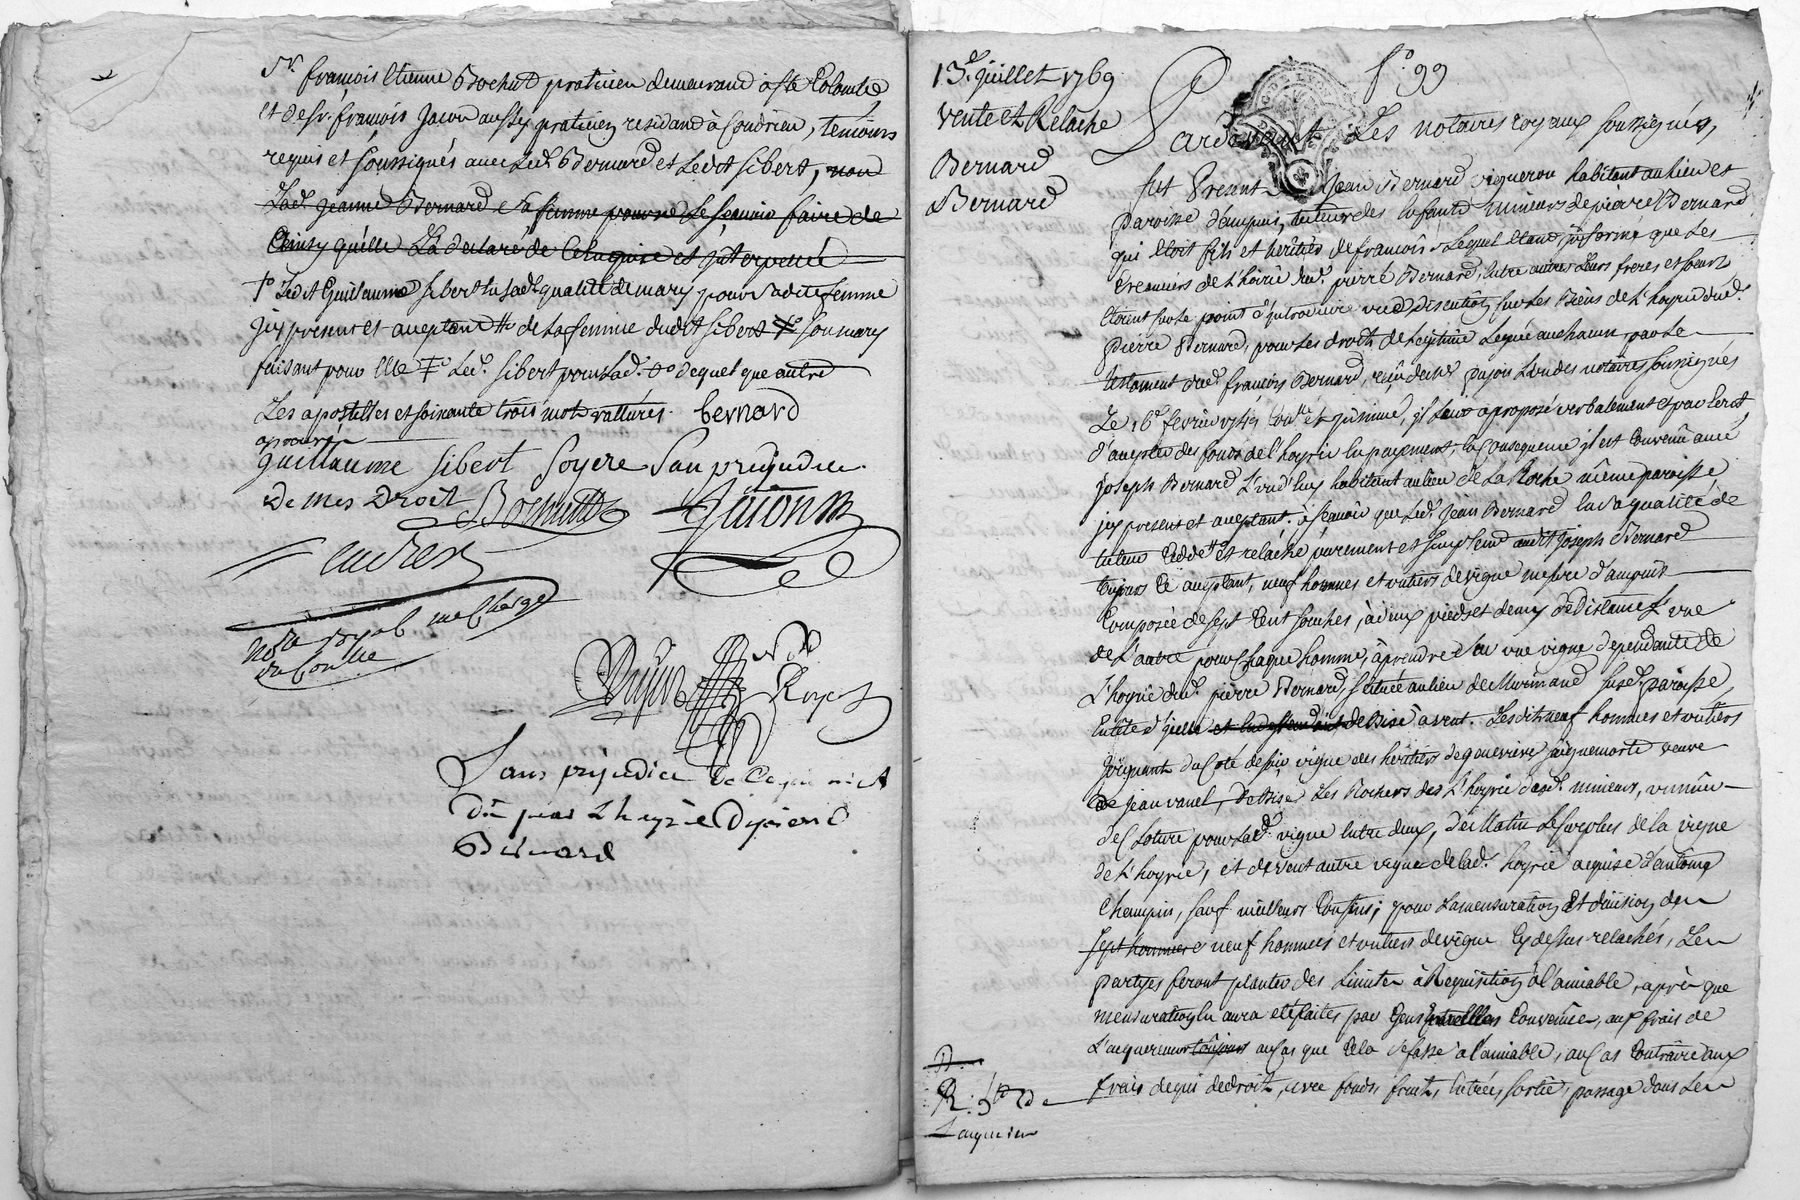 Sr. françois Etienne Bochud praticien demeurand à Ste Colombe
et de Sr. françois Jacou aussy praticien residand à Condrieu, temoins
requis et soussignés avec Led. Bernard et Ledt sibert, non
Lad. jeanne Bernard sa femme pour ne le scavoir faire de
Ainsy quelle L'a declaré de ce Enquise et interpellée
Ledt Guilaume sibert en sad. qualité de mary pour sadite femme
jcy present et aceptant de la femme dudt sibert son mary
faisant pour Elle Led. sibert pour lad. dequel que autre
Les apostilles et soixante trois mots rattures. bernard
aprouvés
guillaume sibert soyere San prejudice
De mes Droit Bochud Guion
No.re royal
Sans prejudice de
Du par L'hoyrie De pierre
Bernard
13e. juillet 1769
Vente et Relache
Bernard
Bernard
fo. 99
Pardevant Les notaires royaux soussignés,
fut Present Jean Bernard vigneron habitant au lieu et
paroisse d'ampuis, tuteur des Enfants mineurs de pierre Bernard
qui Etoit fils et heritier de francois, Lequel Etant informé que Les
Creanciers de L'hoirie dud. pierre Bernard, Entre autres Leurs freres et soeurs
Etoient sur le point d'introduire une Discution sur Les Biens de L'hoyrie dud.
pierre Bernard, pour Les droits de Legitime Legués a chacun par Le
testament dud. francois Bernard, reçu de Me pajon L'un des notaires soussignés
Le 16e fevrier 1749 et insinué, il Leur a proposé verbalement et par Ecrit
d'accepter des fonds de l'hoyrie En payement, En Consequence il est Convenu avec
joseph Bernard L'un d'Eux habitant au lieu de La Roche même paroisse
jcy present et aceptant. à scavoir que Led. jean Bernard En sa qualité de
tuteur Cedde et relache purement et simplemt audt joseph Bernard
toujours Ce aceptant, neuf hommes et un tiers de vigne mesure d'ampuis
Composée de sept Cent souches, à deux pieds et demy de Distance L'une
de L'autre pour chaque homme, à prendre En une vigne dependante de
L'hoyrie dud. pierre Bernard, située au lieu de Murinand susd. paroisse,
Entete d'icelle de Bise à vent. Lesdits neuf hommes et un tiers
joignant du coté de vigne des heritiers de genevieve jaiguemorte veuve
de jean vanel, de Bise Les Rochers de L'hoyrie desd. mineurs, un mur
de Cloture pour Lad. vigne Entre deux, de Matin Le surplus de la vigne
de L'hoyrie, et de vent autre vigne de lad. hoyrie acquise d'antoine
Champin, sauf meilleurs Confins; pour La mensuration et division des
sept hommes neuf hommes et un tiers de vigne Cy dessus relachés, Les
partyes feront planter des Limites à Requisition à l'amiable, après que
mensuration En aura eté faites par Gens Entre Elles Convenüe, aux frais de
L'acquereur toujours au cas que Cela se fasse à l'amiable, au Cas Contraire aux
frais de qui de droit, avec fonds, fruits, Entrées, sortie, passage dans Les
R.
L'acquereur